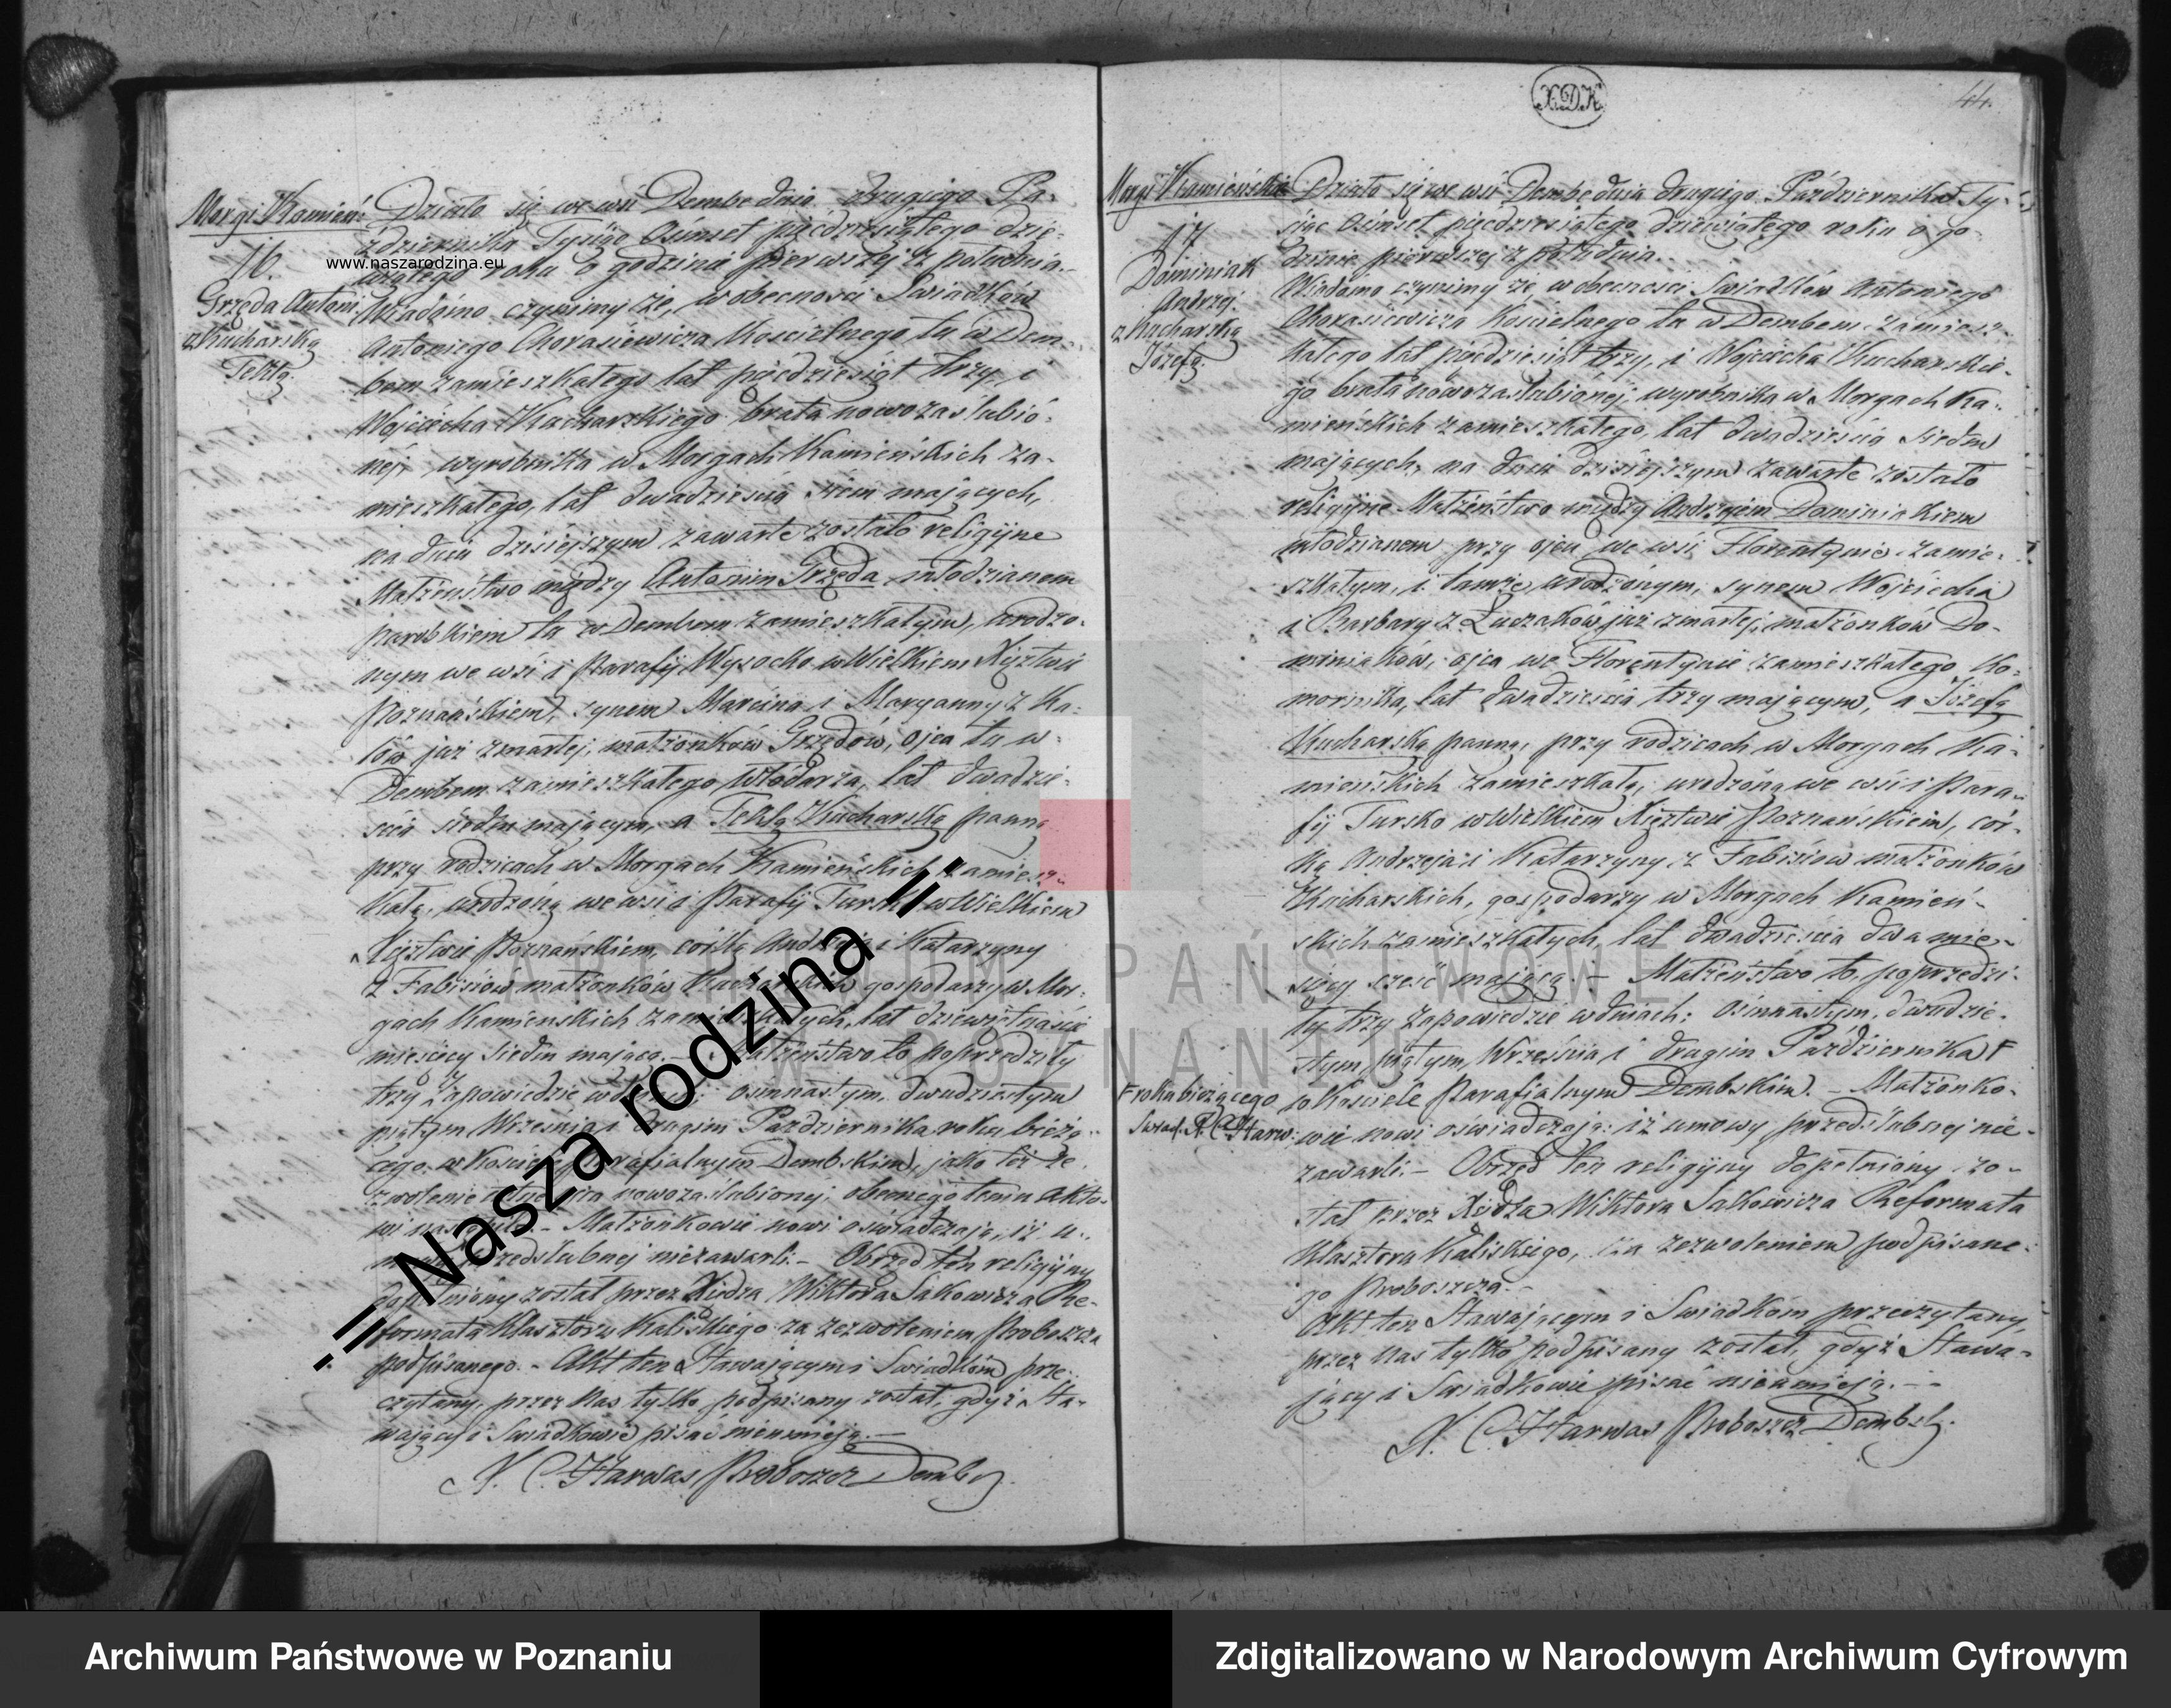 Morgi Kamień:
16.
Grzęda Antoni
z Kucharską
Teklą.
Działo się we wsi Dembe dnia drugiego Pa-
ździernika Tysiąc Osimset pięćdziesiątego dzie-
wiątego roku o godzinie pierwszej z południa.
Wiadomo czynimy że, w obecności Swiadków
Antoniego Chorasiewicza Kościelnego tu w Dem-
bem zamieszkałego lat pięćdziesiąt trzy, i
Wojciecha Kucharskiego brata nowozaslubio-
nej, wyrobnika w Morgach Kamieńskich za-
mieszkałego, lat dwadzieścia siem mających,
na dniu dzisiejszym zawarte zostało religijne
Małżeństwo między Antonim Grzęda młodzianem
parobkiem tu w Dembem zamieszkałym, urodzo-
nym we wsi i Parafij Wysocko w Wielkiem Xięztwie
Poznańskiem, synem Marcina i Maryanny z Ka-
lów już zmarłej, małżonków Grzędów, ojca tu w
Dembem zamieszkałego Włódarza, lat dwadzie-
scia siedm mającym, a Teklą Kucharską panną
przy rodzicach w Morgach Kamieńskich zamiesz-
kałą, urodzoną we wsi i Parafij Tursko w Wielkiem
Xięztwie Poznańskiem, córką Andrzeja i Katarzyny
z Fabisiów małżonków Kucharskich gospodarzy w Mor-
gach Kamienskich zamieszkałych, lat dziewiętnaście
miesięcy siedm mającą. – Małżeństwo to poprzedziły
trzy zapowiedzie w dniach: osimnastym, dwudziestym
piątym Września i drugim Października roku bieżą-
cego w Kościele Parafialnym Dembskim, jako też ze-
zwolenie ustne ojca nowozaślubionej, obecnego temu Akto-
wi nastąpiło. – Małżonkowie nowi oświadczają, iż u-
mowy przedślubnej niezawarli. – Obrzęd ten religijny
dopełniony został przez Xiędza Wiktora Sakowicza Re-
formata Klasztoru Kaliskiego za zezwoleniem Proboszcza
podpisanego. – Akt ten Stawającym i Swiadkom prze-
czytany, przez Nas tylko podpisany został, gdyż Sta-
wający i Swiadkowie pisać nieumieją. –
X. C. Harwas Proboszcz Dembs.
X.D.K.
44.
Morgi Kamieńskie
17
Dominiak
Andrzej.
z Kucharską
Józefą.
Działo się we wsi Dembe dnia drugiego Października Ty-
siąc Osimset pięćdziesiątego dziewiątego roku o go-
dzinie pierwszej z południa.
Wiadomo czynimy że w obecności Swiadków Antoniego
Chorasiewicza Kościelnego tu w Dembem zamiesz-
kałego lat pięćdziesiąt trzy, i Wojciecha Kucharskie-
go brata nowozaslubionej, wyrobnika w Morgach Ka-
mieńskich zamieszkałego, lat dwadzieścia siedm
mających, na dniu dzisiejszym zawarte zostało
religijne Małżeństwo między Andrzejem Dominiakiem
młodzianem przy ojcu we wsi Florentynie zamie-
szkałym, i tamże urodzonym, synem Wojciecha
i Barbary z Łuczaków już zmarłej, małżonków Do-
miniaków, ojca we Florentynie zamieszkałego Ko-
mornika, lat dwadzieścia trzy mającym, a Józefą
Kucharską panną, przy rodzicach w Morgach Ka-
mieńskich zamieszkałą, urodzoną we wsi i Para-
fij Tursko w Wielkiem Xięztwie Poznańskiem, cór-
ką Andrzeja i Katarzyny z Fabisiów małżonków
Kucharskich, gospodarzy w Morgach Kamień-
skich zamieszkałych, lat dwadzieścia dwa mie-
sięcy sześć mającą. – Małżeństwo to poprzedzi-
ły trzy zapowiedzie w dniach: osimnastym, dwudzie-
stym piątym Września i drugim Października F
F roku bieżącego
Swiad. X. C. Harw:
w Kościele Parafialnym Dembskim. – Małżonko-
wie nowi oświadczają: iż umowy przedślubnej nie-
zawarli. – Obrzęd ten religijny dopełniony zo-
stał przez Xiędza Wiktora Sakowicza Reformata
Klasztoru Kaliskiego, za zezwoleniem podpisane-
go Proboszcza. –
Akt ten Stawającym i Swiadkom przeczytany,
przez Nas tylko podpisany został, gdyż Stawa-
jący i Swiadkowie pisać nieumieją. –
X. C. Harwas Proboszcz Dembsk.
www.naszarodzina.eu
.:: Nasza rodzina ::.
ARCHIWUM PAŃSTWOWE
W POZNANIU
Archiwum Państwowe w Poznaniu
Zdigitalizowano w Narodowym Archiwum Cyfrowym